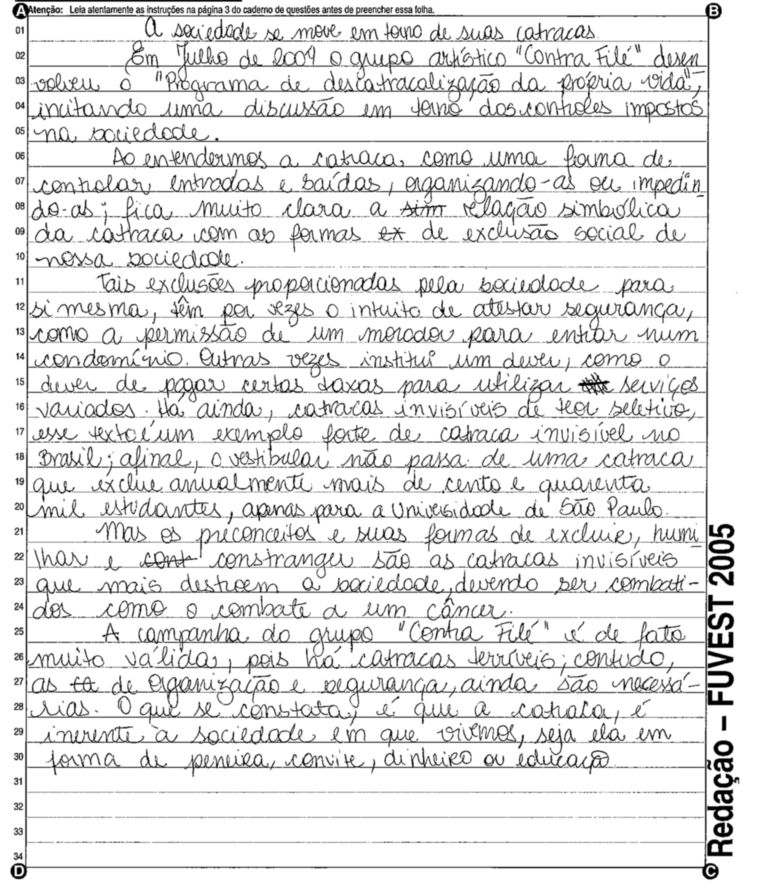 A Atenção: Leia atentamente as instruções na página 3 do caderno de questões antes de preencher essa folha. B
01 A sociedade se move em torno de suas catracas
02 Em Julho de 2004 o grupo artístico "Contra Filé" desen
03 volveu o "Programa de descatracalização da própria vida",
04 incitando uma discussão em torno dos controles impostos
05 na sociedade.
06 Ao entendermos a catraca, como uma forma de
07 controlar entradas e saídas, organizando-as ou impedin
08 do-as; fica muito clara a sim relação simbólica
09 da catraca com as formas ex de exclusão social de
10 nossa sociedade.
11 Tais exclusões proporcionadas pela sociedade para
12 si mesma, têm por vezes o intuito de atestar segurança,
13 como a permissão de um morador para entrar num
14 condomínio. Outras vezes institui um dever, como o
15 dever de pagar certas taxas para utilizar serviços
16 variados. Há ainda, catracas invisíveis de teor seletivo,
17 esse texto é um exemplo forte de catraca invisível no
18 Brasil; afinal, o vestibular não passa de uma catraca
19 que exclue anualmente mais de cento e quarenta
20 mil estudantes, apenas para a Universidade de São Paulo.
21 Mas os preconceitos e suas formas de excluir, humi
22 lhar e cont constranger são as catracas invisíveis
23 que mais destroem a sociedade, devendo ser combati-
24 dos como o combate a um câncer.
25 A campanha do grupo "Contra Filé" é de fato
26 muito válida, pois há catracas terríveis; contudo,
27 as de organização e segurança, ainda são necessá-
28 rias. O que se constata, é que a catraca, é
29 inerente à sociedade em que vivemos, seja ela em
30 forma de peneira, convite, dinheiro ou educação
31
32
33
34
D C
Redação – FUVEST 2005